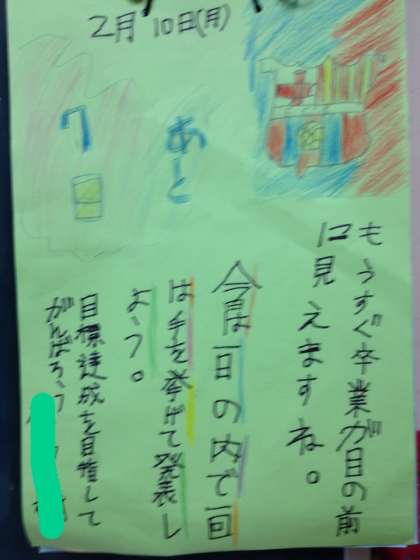 2月10日(月)
あと
7日
もうすぐ卒業が目の前
に見えますね。
今日は一日の内で一回
は手を挙げて発表し
よう。
目標達成を目指して
がんばろう